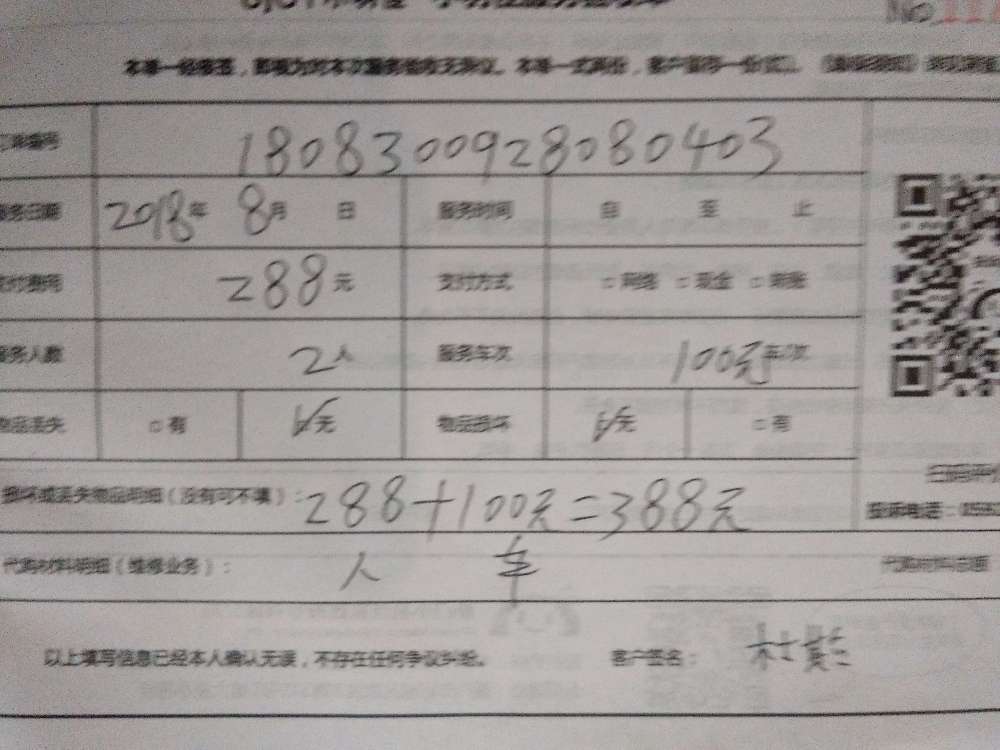 No.
本单一经签签，即视为对本次服务验收无异议。本单一式两份，客户留存一份
订单编号 1808300928080403
服务日期 2018年 8月 日 服务时间 自 至 止
支付费用 288元 支付方式 □ 网络 □ 现金 □ 转账
服务人数 2人 服务车次 100元 车/次
物品丢失 □ 有 ✓无 物品损坏 ✓无 □ 有
损坏或丢失物品明细（没有可不填）：288+100元=388元
扫码评价
投诉电话：0592
代购材料明细（维修业务）： 人 车 代购材料总额
以上填写信息已经本人确认无误，不存在任何争议纠纷。 客户签名：